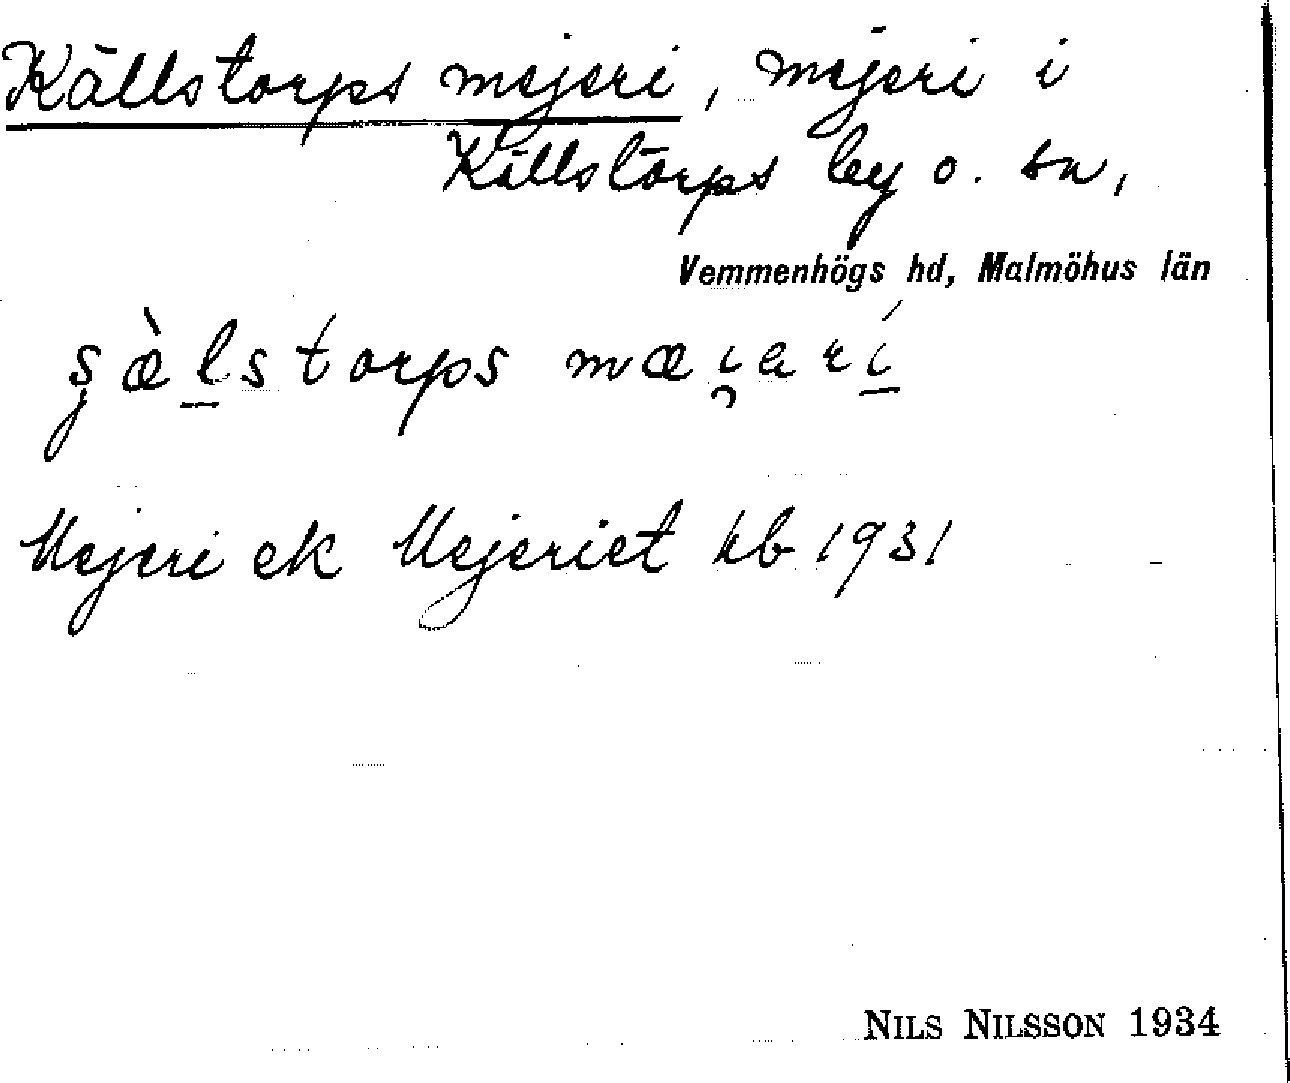 Källstorps mejeri, mejeri i
Källstorps by o. sn,
Vemmenhögs hd, Malmöhus län
ʂæ̀l̲storps mæi̯arí̲
Mejeri ek Mejeriet hb 1931
NILS NILSSON 1934